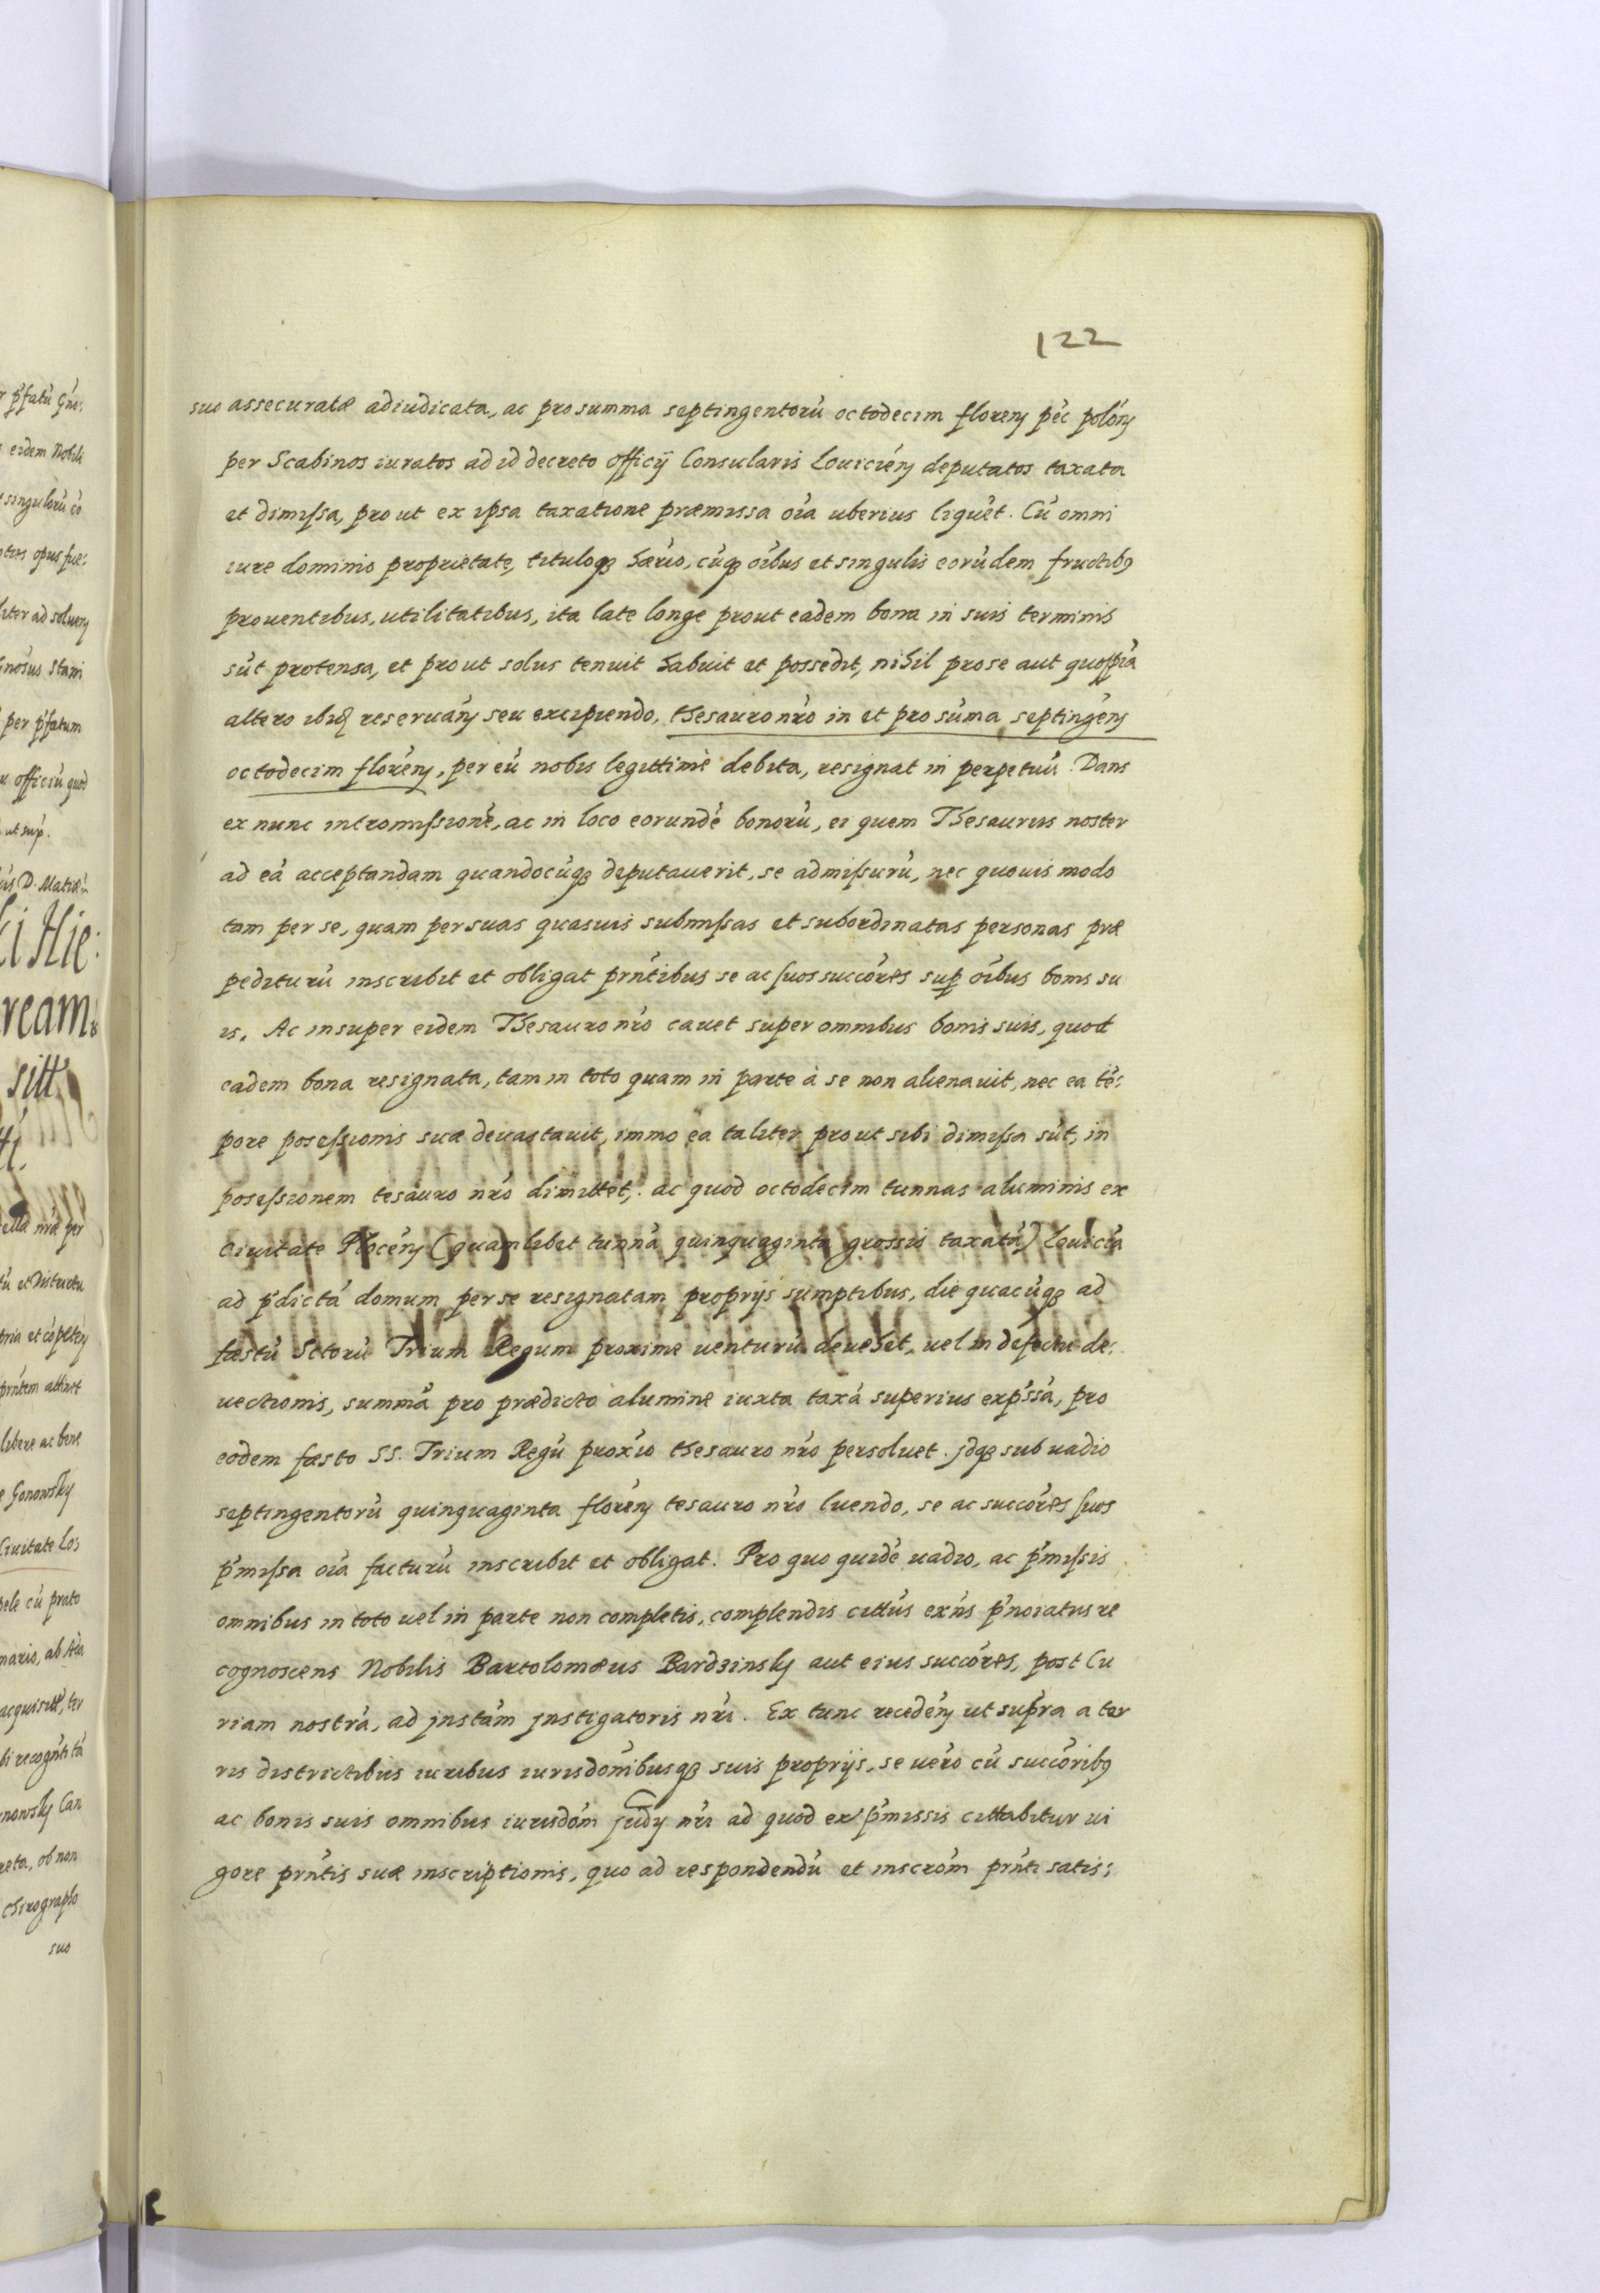 122
suo assecuratæ adiudicata, ac pro summa septingentorũ octodecim floreñ pẽc polõñ
per Scabinos iuratos ad id decreto officij Consularis Louicień deputatos taxata
et dimissa, prout ex ipsa taxatione præmissa oĩa uberius liquẽt. Cũ omni
iure dominio proprietate, tituloq₃ hærio, cũq₃ oĩbus et singulis eorũdem fructib₉
prouentibus, utilitatibus, ita late longe prout eadem bona in suis terminis
sũt protensa, et prout solus tenuit habuit et possedit, nihil pro se aut quospiã
altero ibid reseruãń seu excipiendo, thesauro nr̃o in et pro sũma septingẽń
octodecim florẽń, per eũ nobis legittimè debita, resignat in perpetuũ. Dans
ex nunc intromissionẽ, ac in loco eorundẽ bonorũ, ei quem Thesaurus noster
ad eã acceptandam quandocũq₃ deputauerit, se admissurũ, nec quouis modo
tam per se, quam per suas quasuis submissas et subordinatas personas præ
pediturũ inscribit et obligat pr̃ntibus se ac suos succõres sup oĩbus bonis su
is. Ac insuper eidem Thesauro nr̃o cauet super omnibus bonis suis, quod
eadem bona resignata, tam in toto quam in parte à se non alienauit, nec ea tẽ:
pore posessionis suæ deuastauit, immo ea taliter prout sibi dimissa sũt, in
posessionem tesauro nr̃o dimittet,. ac quod octodecim tunnas aluminis ex
Ciuitate Plocẽń (quamlibet tunnã quinquaginta grossis taxatã) Louiciã
ad p̃dictã domum per se resignatam proprijs sumptibus, die quacũq₃ ad
fæstũ Sctorũ Trium Regum proxime uenturũ deuehet, uel in defectu de:
uectionis, summã pro prædicto alumine iuxta taxã superius exp̃ssã, pro
eodem fæsto SS. Trium Regũ proxĩo thesauro nr̃o persoluet. jdq₃ sub uadio
septingentorũ quinquaginta florẽń tesauro nr̃o luendo, se ac succõres suos
p̃missa oĩa facturũ inscribit et obligat. Pro quo quidẽ uadio, ac p̃missis
omnibus in toto uel in parte non completis, complendis cittũs exñs p̃noĩatus re
cognoscens Nobilis Bartolomæus Bardzinsky aut eius succõres, post Cu
riam nostrã, ad jnstãm jnstigatoris nr̃i. Ex tunc recedẽń ut supra a ter
ris districtibus iuribus iurisdõnibusq₃ suis proprijs, se uero cũ succõrib₉
ac bonis suis omnibus iurisdõm nr̃i ad quod ex p̃missis cittabitur ui
gore pr̃ntis suæ inscriptionis, quo ad respondendũ et inscrõm pr̃nti satis: